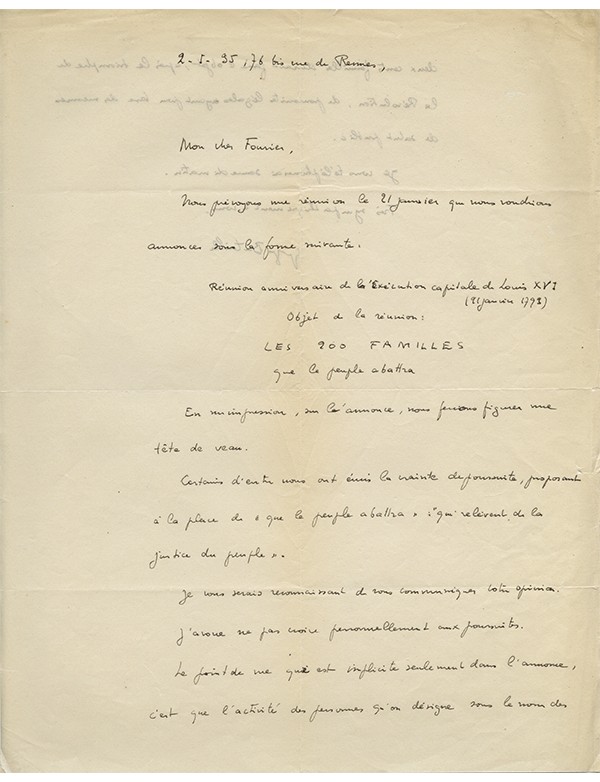 2-5-35, 76 bis rue de Rennes,
Mon cher Fourrier,
Nous prévoyons une réunion le 21 janvier que nous voudrions
annoncer sous la forme suivante :
Réunion anniversaire de l'Exécution capitale de Louis XVI
(21 janvier 1793)
Objet de la réunion :
LES 200 FAMILLES
que le peuple abattra
En surimpression, sur l'annonce, nous ferions figurer une
tête de veau.
Certains d'entre nous ont émis la crainte de poursuite, proposant
à la place de « que le peuple abattra » « qui relèvent de la
justice du peuple ».
Je vous serais reconnaissant de vous communiquer votre opinion.
J'avoue ne pas croire personnellement aux poursuites.
Le point de vue qui est implicite seulement dans l'annonce,
c'est que l'activité des personnes qu'on désigne sous le nom des